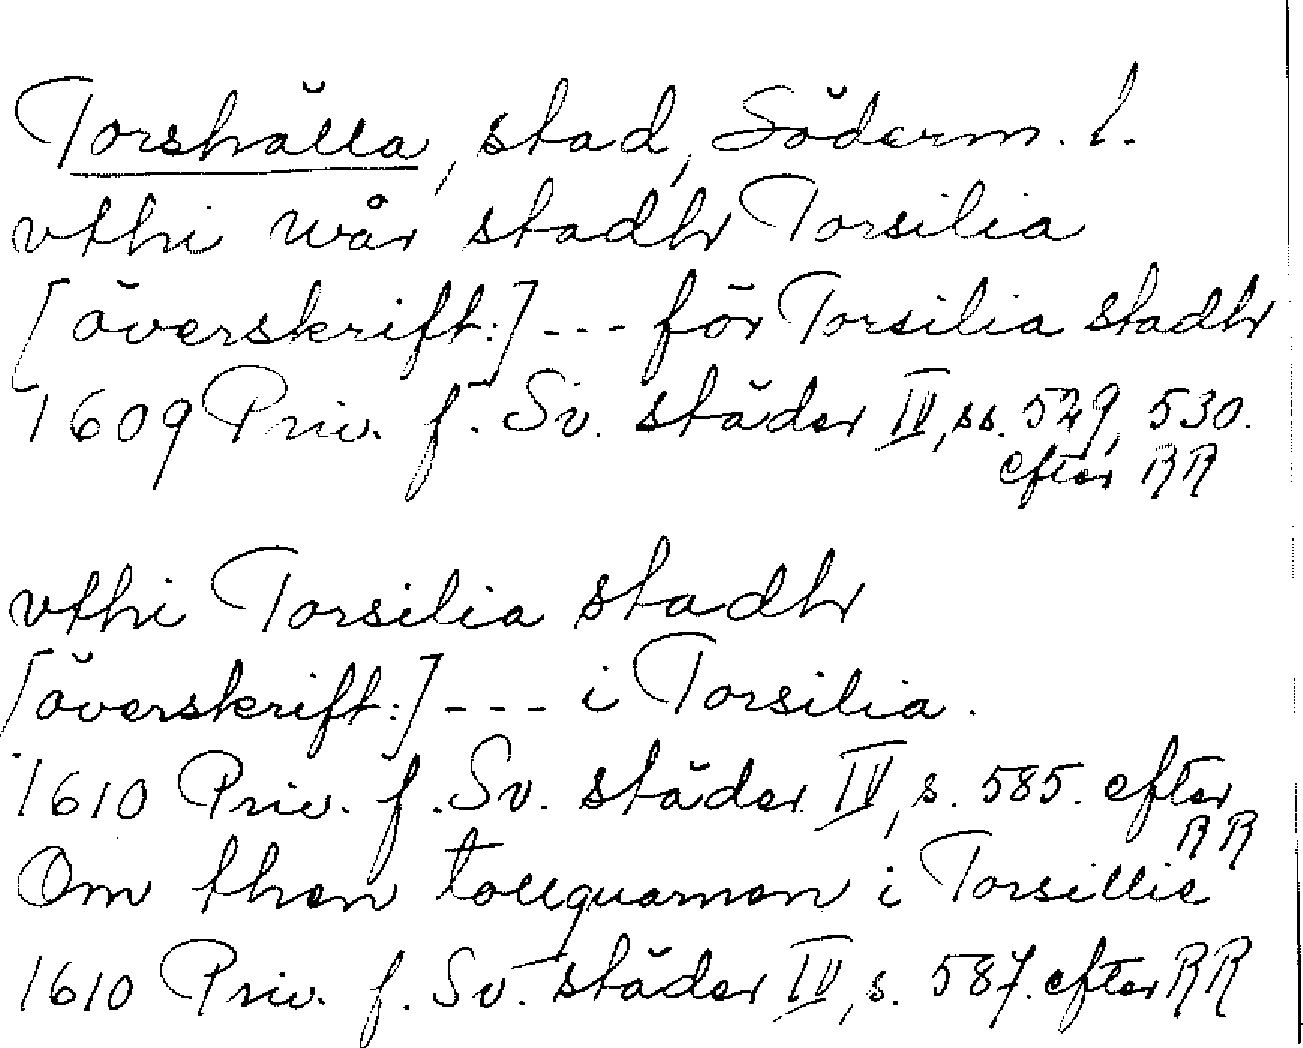 Torshälla, stad, Söderm. l.
vthi wår stadh Torsilia
[överskrift:] --- för Torsilia stadh
1609 Priv. f. Sv. städer IV, ss. 529, 530.
efter RR
vthi Torsilia stadh
[överskrift:] --- i Torsilia.
1610 Priv. f. Sv. städer IV, s. 585. efter
RR
Om then tollquarnen i Torsillie
1610 Priv. f. Sv. städer IV, s. 587. efter RR